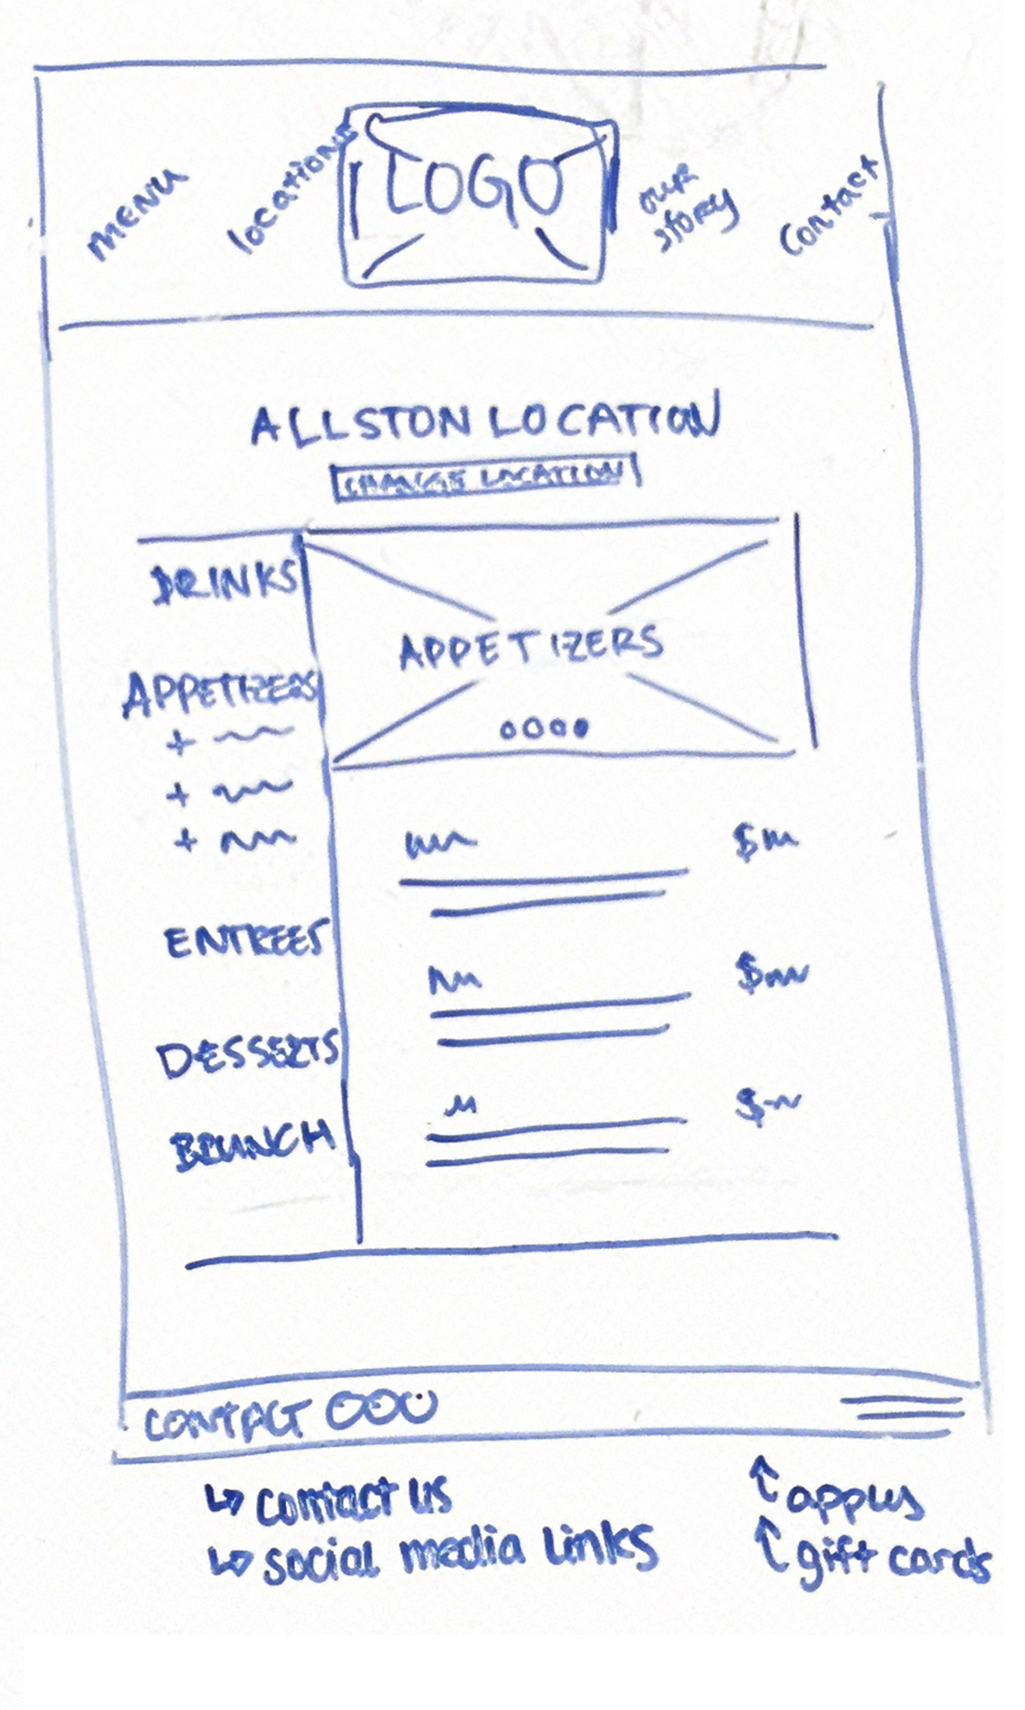 MENU
locations
LOGO
our
story
Contact
ALLSTON LOCATION
CHANGE LOCATION
DRINKS
APPETIZERS
APPETIZERS
+
+
+
$
ENTREES
$
DESSERTS
$
BRUNCH
CONTACT
↳ contact us
↳ social media links
↑
↑ gift cards